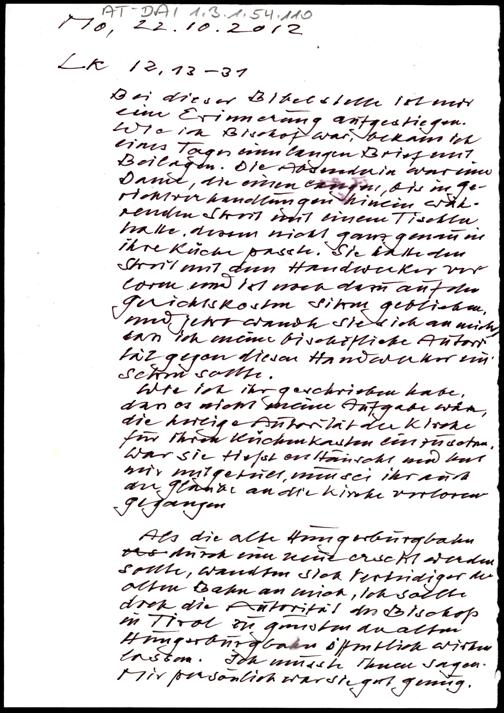 AT-DAI 1.3.1.54.110
Mo, 22.10.2012
Lk 12,13-31
Bei dieser Bibelstelle ist mir
eine Erinnerung aufgestiegen.
Wie ich Bischof war, bekam ich
eines Tages einen langen Brief mit
Beilagen. Die Absenderin war eine
Dame, die einen langen, bis in Ge-
richtsverhandlungen hinein wäh-
renden Streit mit einem Tischler
hatte, dessen nicht ganz genau in
ihre Küche passte. Sie hatte den
Streit mit dem Handwerker ver
loren und ist noch dazu auf den
Gerichtskosten sitzen geblieben,
und jetzt wandte sie sich an mich,
dass ich meine bischöfliche Autori
tät gegen diesen Handwerker ein
setzen sollte.
Wie ich ihr geschrieben habe,
dass es nicht meine Aufgabe wäre,
die heilige Autorität der Kirche
für ihren Küchenkasten einzusetzen.
War sie tiefst enttäuscht und hat
mir mitgeteilt, nun sei ihr auch
der Glaube an die Kirche verloren
gegangen
Als die alte Hungerburgbahn
durch eine neue ersetzt werden
sollte, wandten sich Verteidiger der
alten Bahn an mich, ich sollte
doch die Autorität des Bischofs
in Tirol zu gunsten der alten
Hungerburgbahn öffentlich wirken
lassen. Ich musste ihnen sagen.
Mir persönlich war sie gut genug.